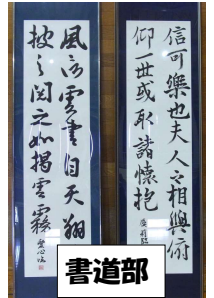 信可樂也夫人之相與俯
仰一世或取諸懷抱
風詠雲書自天翔
披之閱之如揭雲霧
書道部